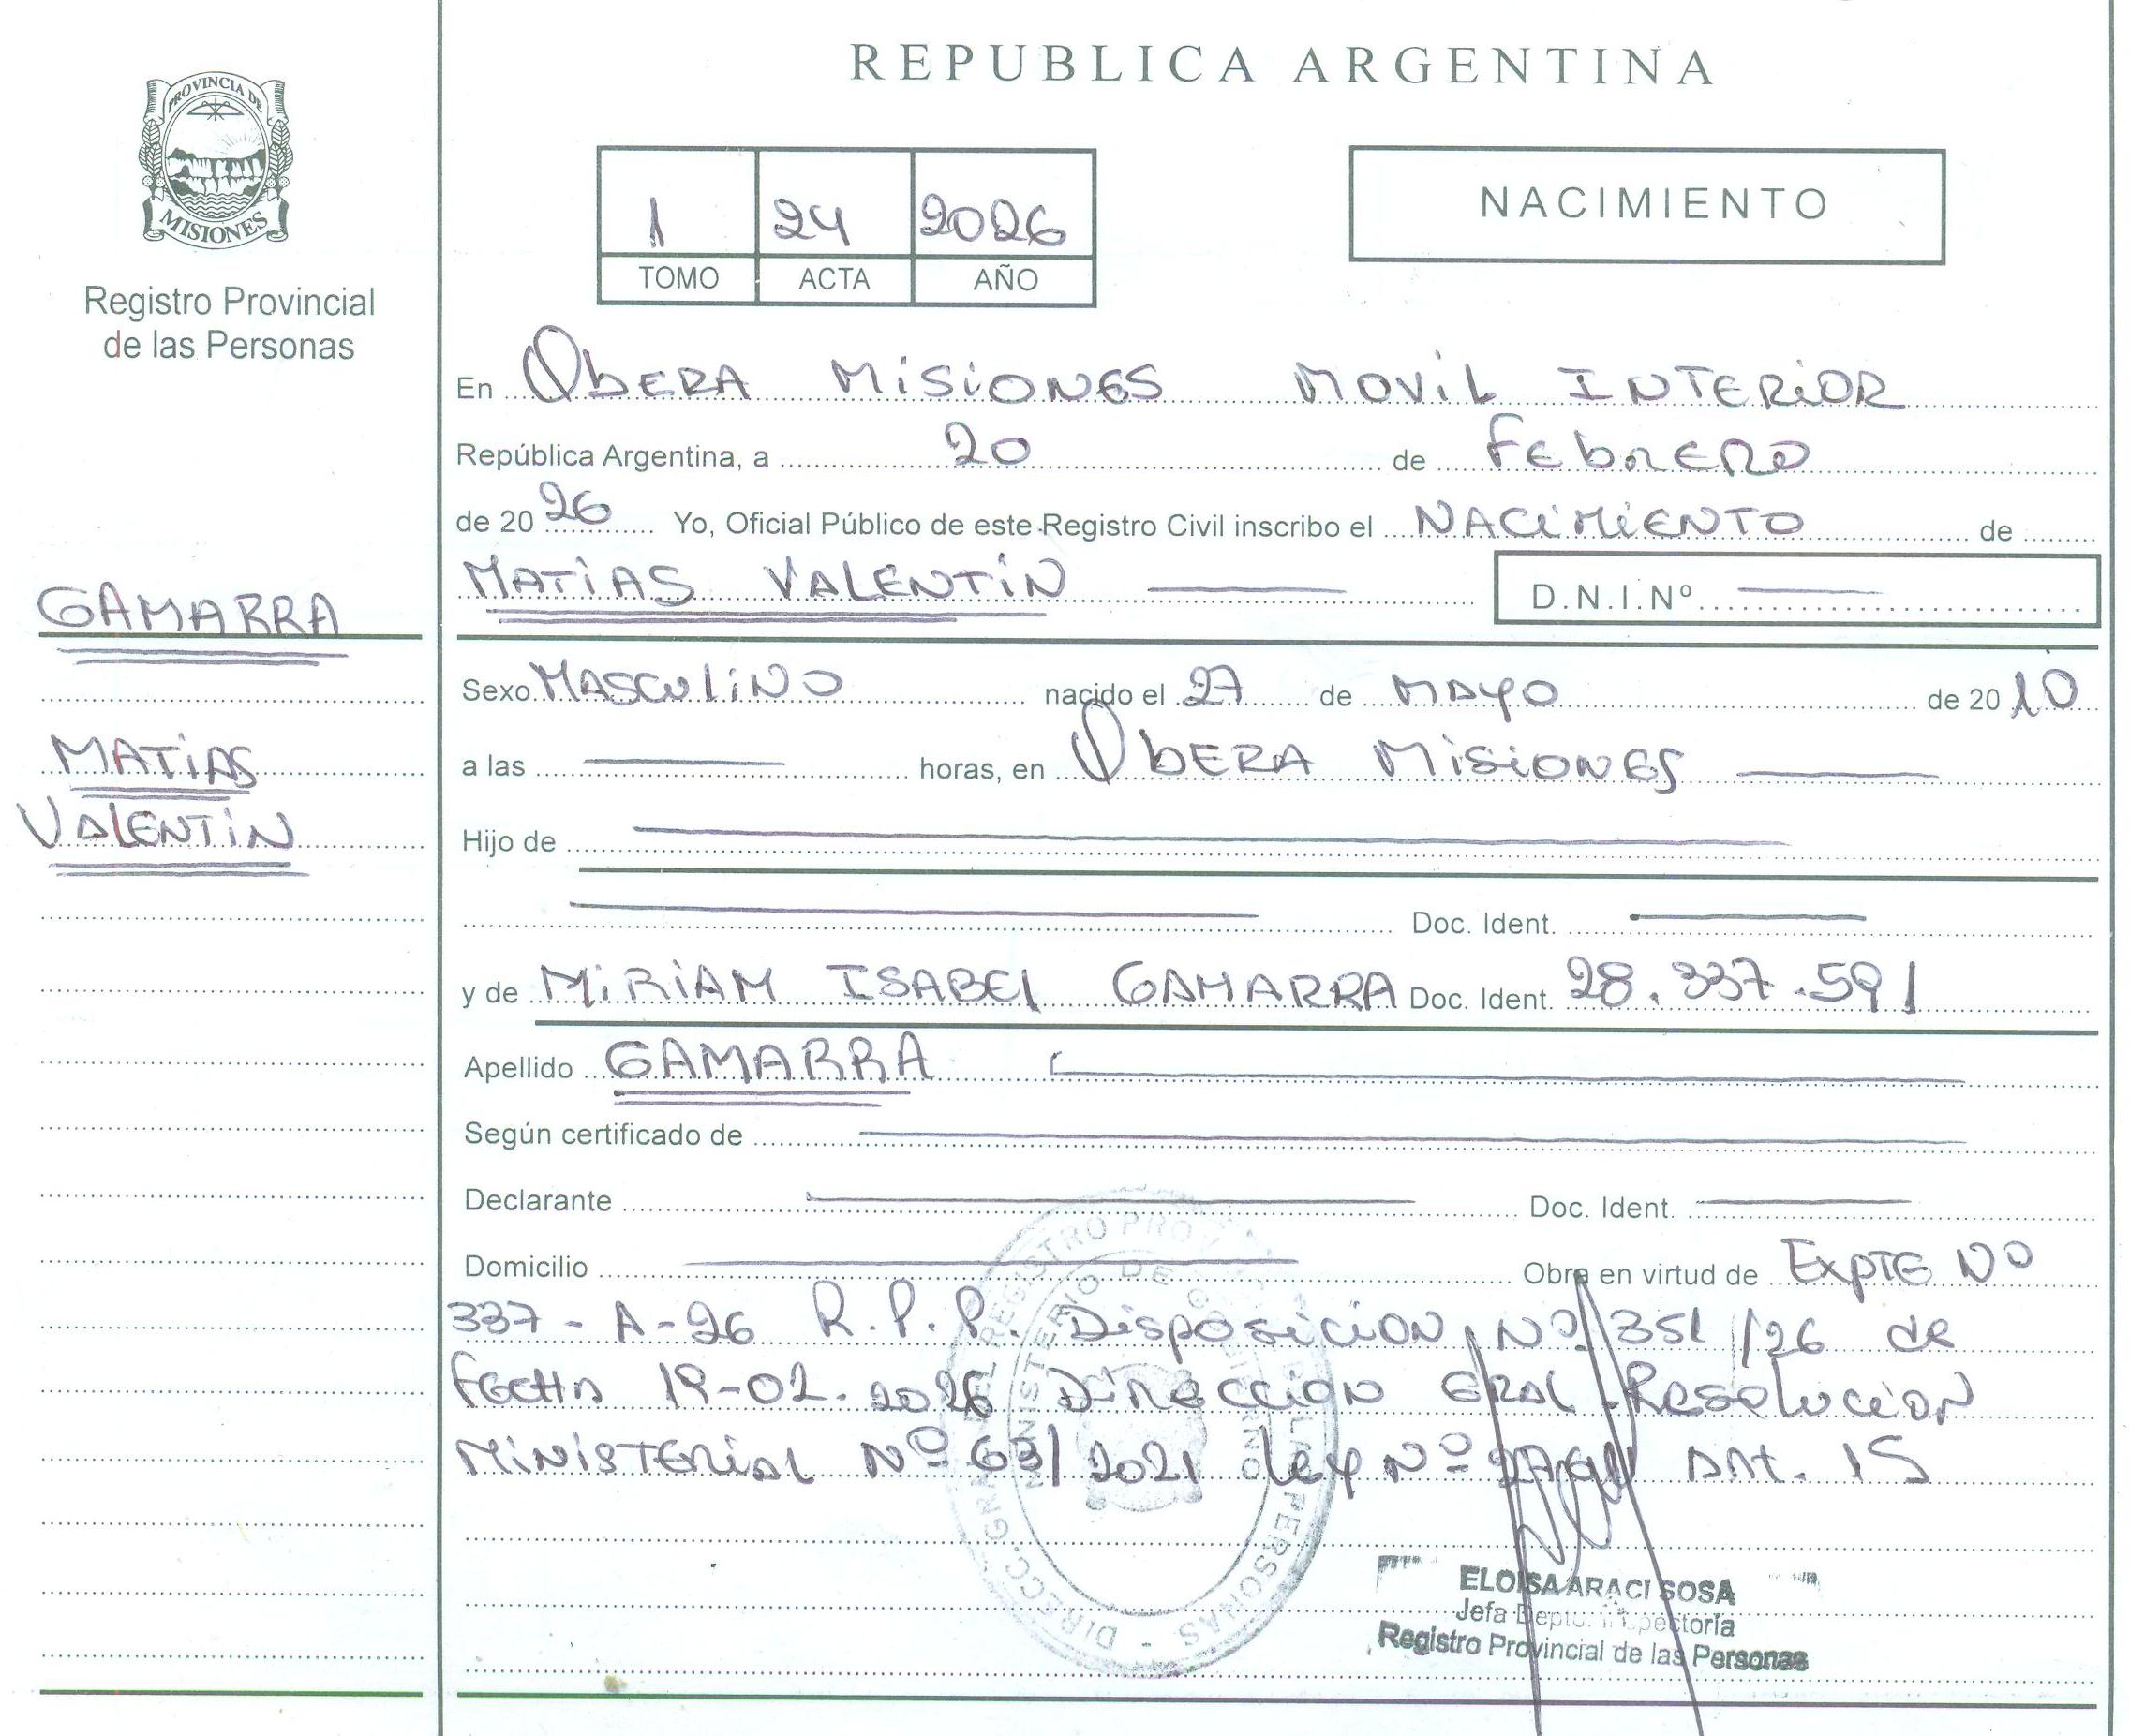 REPUBLICA ARGENTINA
PROVINCIA DE
MISIONES
Registro Provincial
de las Personas
1 24 2026
TOMO ACTA AÑO
NACIMIENTO
En ObERA MiSiONES MOViL INTERiOR
República Argentina, a 20 de FEbRERO
de 20 26 Yo, Oficial Público de este Registro Civil inscribo el NACiMiENTO de
MATiAS VALENTiN D.N.I.Nº
GAMARRA
Sexo MASCUliNO nacido el 27 de MAyO de 20 10
MATiAS
a las horas, en ObERA MiSiONES
VALENTiN
Hijo de
Doc. Ident.
y de MiRiAM ISABEl GAMARRA Doc. Ident. 28.337.591
Apellido GAMARRA
Según certificado de
Declarante Doc. Ident.
Domicilio Obra en virtud de ExpTE Nº
337-A-26 R.P.P. DispOsiciON Nº 351/26 de
FECHA 19-02-2026 DiRECCiON GRAL. RESOluciON
MiNiSTERiAL Nº 63/2021 lEy Nº ARt. 15
DIRECC. GRAL. REGISTRO PROV. DE LAS PERSONAS -
MINISTERIO DE GOBIERNO
ELOISA ARACI SOSA
Jefa Depto. Inspectoría
Registro Provincial de las Personas